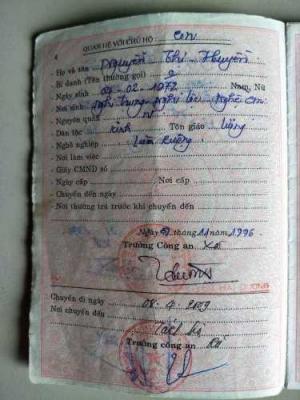 4
QUAN HỆ VỚI CHỦ HỘ: con
Họ và tên Nguyễn Thị Huyền
Bí danh (Tên thường gọi)
Ngày sinh 09.02.1972 Nam, Nữ
Nơi sinh Nghi Trung Nghi Lộc Nghệ An
Nguyên quán
Dân tộc kinh Tôn giáo không
Nghề nghiệp làm ruộng
Nơi làm việc
Giấy CMND số
Ngày cấp Nơi cấp
Chuyển đến ngày
Nơi thường trú trước khi chuyển đến
Ngày tháng 11 năm 1996
Trưởng Công an Xã
Chuyển đi ngày 08.4.2009
Nơi chuyển đến
Trưởng công an